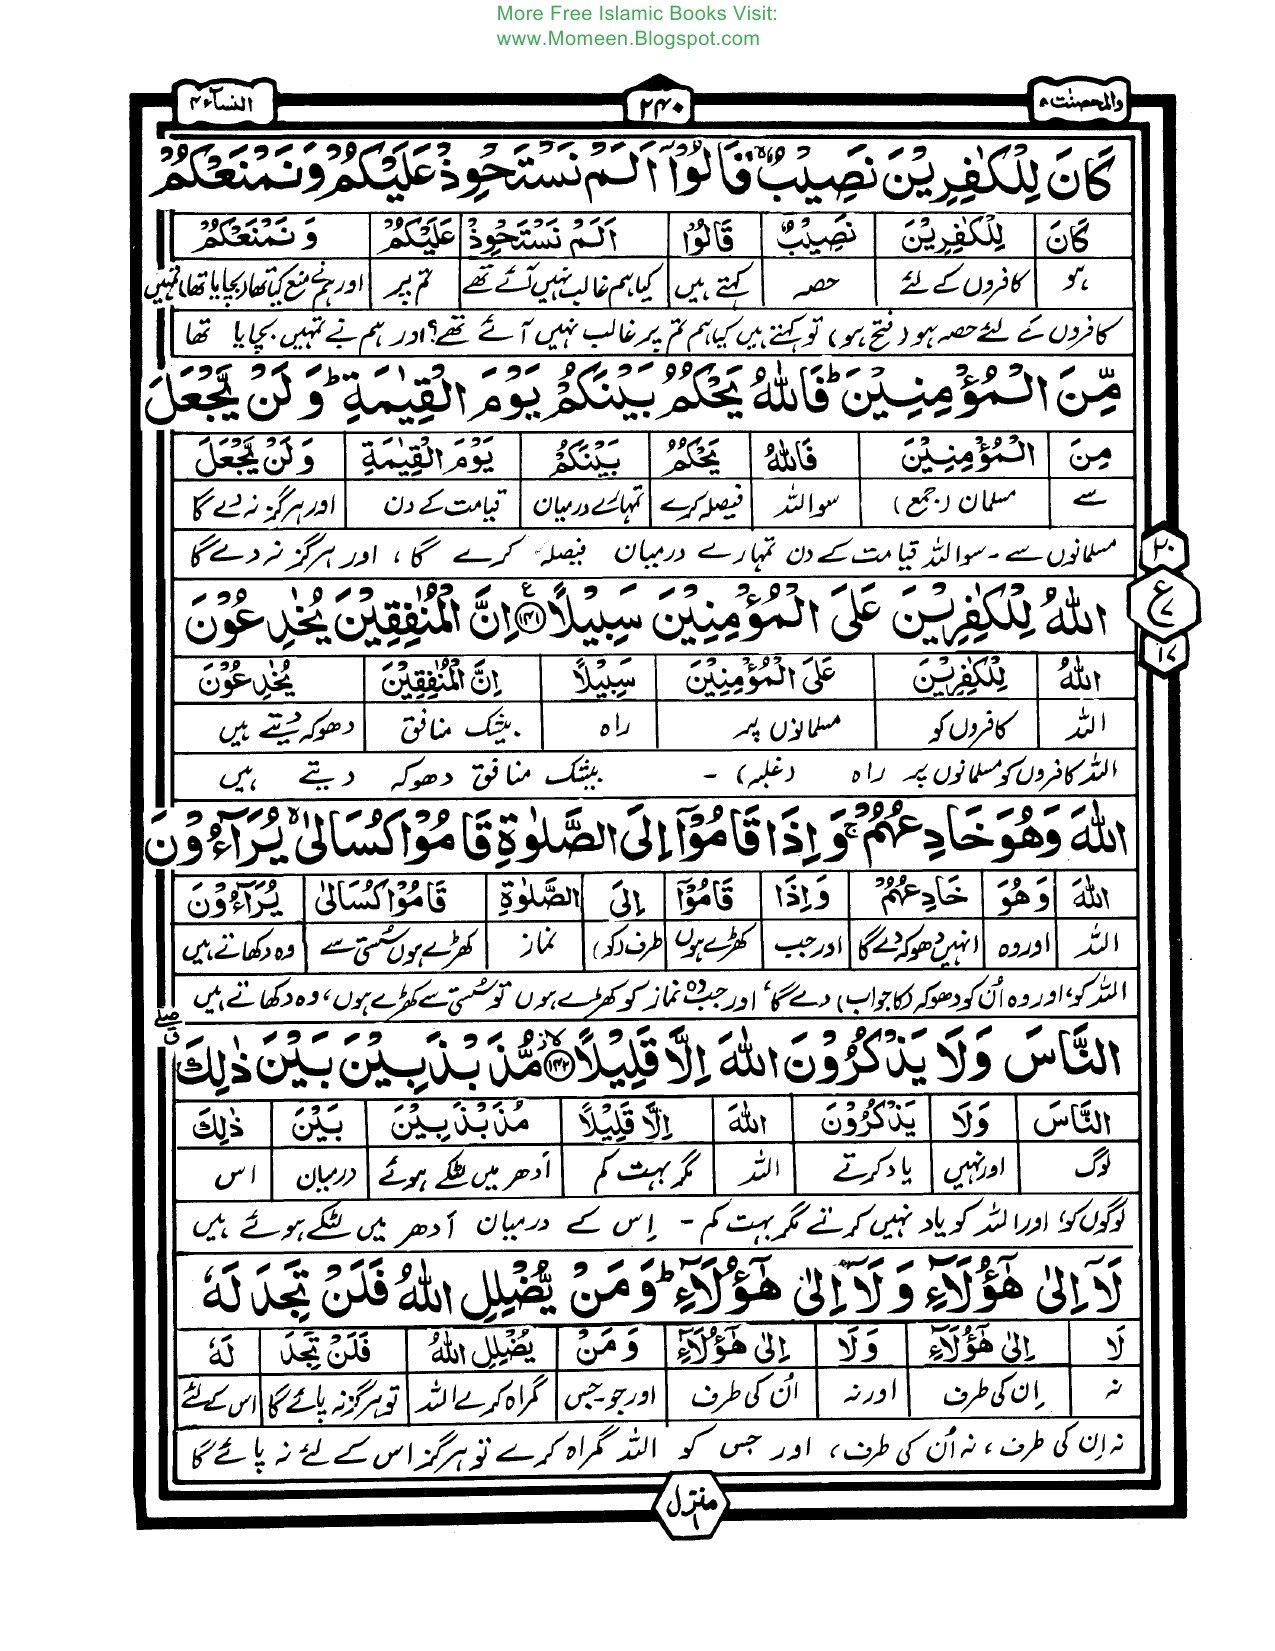 More Free Islamic Books Visit:
www.Momeen.Blogspot.com
والمحصنٰت ۵ ۲۴۰ النسآء ۴
كَانَ لِلْكٰفِرِيْنَ نَصِيْبٌ ۙ قَالُوْۤا اَلَمْ نَسْتَحْوِذْ عَلَيْكُمْ وَنَمْنَعْكُمْ
كَانَ لِلْكٰفِرِيْنَ نَصِيْبٌ قَالُوْٓا اَلَمْ نَسْتَحْوِذْ عَلَيْكُمْ وَ نَمْنَعْكُمْ
ہو کافروں کے لئے حصہ کہتے ہیں کیا ہم غالب نہیں آئے تھے تم پر اور ہم نے منع کیا تھا (بچایا تھا) تمہیں
کافروں کے لئے حصہ ہو (فتح ہو) تو کہتے ہیں کیا ہم تم پر غالب نہیں آئے تھے؟ اور ہم نے تمہیں بچایا تھا
مِّنَ الْمُؤْمِنِيْنَ ؕ فَاللّٰهُ يَحْكُمُ بَيْنَكُمْ يَوْمَ الْقِيٰمَةِ ؕ وَ لَنْ يَّجْعَلَ
مِنَ الْمُؤْمِنِيْنَ فَاللّٰهُ يَحْكُمُ بَيْنَكُمْ يَوْمَ الْقِيٰمَةِ وَ لَنْ يَّجْعَلَ
سے مسلمان (جمع) سو اللہ فیصلہ کرے تمہارے درمیان قیامت کے دن اور ہرگز نہ دے گا
مسلمانوں سے - سو اللہ قیامت کے دن تمہارے درمیان فیصلہ کرے گا، اور ہرگز نہ دے گا
۲۰
ع
۷
۱۷
اللّٰهُ لِلْكٰفِرِيْنَ عَلَى الْمُؤْمِنِيْنَ سَبِيْلًا ﴿۱۴۱﴾ اِنَّ الْمُنٰفِقِيْنَ يُخٰدِعُوْنَ
اللّٰهُ لِلْكٰفِرِيْنَ عَلَى الْمُؤْمِنِيْنَ سَبِيْلًا اِنَّ الْمُنٰفِقِيْنَ يُخٰدِعُوْنَ
اللہ کافروں کو مسلمانوں پر راہ بیشک منافق دھوکہ دیتے ہیں
اللہ کافروں کو مسلمانوں پر راہ (غلبہ) - بیشک منافق دھوکہ دیتے ہیں
اللّٰهَ وَهُوَ خَادِعُهُمْ ۚ وَ اِذَا قَامُوْۤا اِلَى الصَّلٰوةِ قَامُوْا كُسَالٰى ۙ يُرَآءُوْنَ
اللّٰهَ وَهُوَ خَادِعُهُمْ وَ اِذَا قَامُوْٓا اِلَى الصَّلٰوةِ قَامُوْا كُسَالٰى يُرَآءُوْنَ
اللہ اور وہ انہیں دھوکہ دے گا اور جب کھڑے ہوں طرف (کو) نماز کھڑے ہوں سستی سے وہ دکھاتے ہیں
اللہ کو، اور وہ اُن کو دھوکہ (کا جواب) دے گا، اور جب وہ نماز کو کھڑے ہوں تو سستی سے کھڑے ہوں، وہ دکھاتے ہیں
النَّاسَ وَلَا يَذْكُرُوْنَ اللّٰهَ اِلَّا قَلِيْلًا ﴿۱۴۲﴾ مُّذَبْذَبِيْنَ بَيْنَ ذٰلِكَ
النَّاسَ وَلَا يَذْكُرُوْنَ اللّٰهَ اِلَّا قَلِيْلًا مُذَبْذَبِيْنَ بَيْنَ ذٰلِكَ
لوگ اور نہیں یاد کرتے اللہ مگر بہت کم اَدھر میں لٹکے ہوئے درمیان اس
لوگوں کو، اور اللہ کو یاد نہیں کرتے مگر بہت کم - اِس کے درمیان اَدھر میں لٹکے ہوئے ہیں
لَاۤ اِلٰى هٰۤؤُلَآءِ وَ لَاۤ اِلٰى هٰۤؤُلَآءِ ؕ وَ مَنْ يُّضْلِلِ اللّٰهُ فَلَنْ تَجِدَ لَهٗ
لَا اِلٰى هٰٓؤُلَآءِ وَ لَا اِلٰى هٰٓؤُلَآءِ وَ مَنْ يُضْلِلِ اللّٰهُ فَلَنْ تَجِدَ لَهٗ
نہ اِن کی طرف اور نہ اُن کی طرف اور جو- جس گمراہ کرے اللہ تو ہرگز نہ پائے گا اس کے لئے
نہ اِن کی طرف، نہ اُن کی طرف، اور جس کو اللہ گمراہ کرے تو ہرگز اس کے لئے نہ پائے گا
منزل ۱